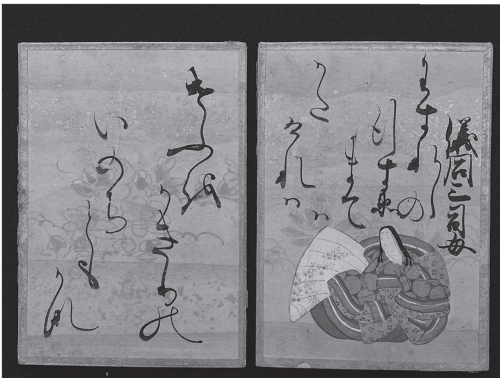 儀同三司母
わすれしの
行すゑ
まてハ
かた
けれハ
けふを
かきりの
いのち
とも
かな